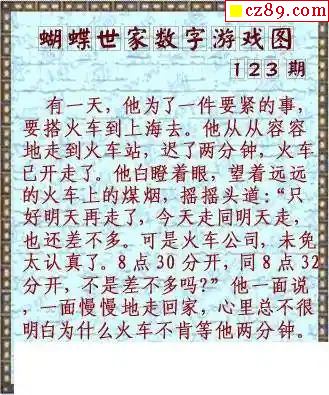 cz89.com
蝴蝶世家数字游戏图
123期
有一天，他为了一件要紧的事，
要搭火车到上海去。他从从容容
地走到火车站，迟了两分钟，火车
已开走了。他白瞪着眼，望着远远
的火车上的煤烟，摇摇头道：“只
好明天再走了，今天走同明天走，
也还差不多。可是火车公司，未免
太认真了。8点30分开，同8点32
分开，不是差不多吗？”他一面说
，一面慢慢地走回家，心里总不很
明白为什么火车不肯等他两分钟。